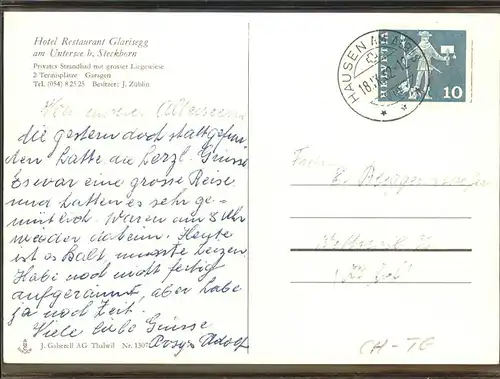 Hotel Restaurant Glarisegg
am Untersee b. Steckborn
Privates Strandbad mit grosser Liegewiese
2 Tennisplätze Garagen
Tel. (054) 8 25 25 Besitzer: J. Züblin
Von unserer
die gestern doch stattgefun-
den hatte die herzl. Grüsse
Es war eine grosse Reise
und hatten es sehr ge-
mütlich. Waren um 8 Uhr
wieder daheim. Heute
ist es kalt, musste heizen.
Habe noch nicht fertig
aufgeräumt, aber habe
ja noch Zeit.
Viele liebe Grüsse
Rosy & Adolf
J. Gaberell AG Thalwil Nr. 1307
HAUSEN A. ALBIS
HELVETIA
10
Frau
E.
CH-TG